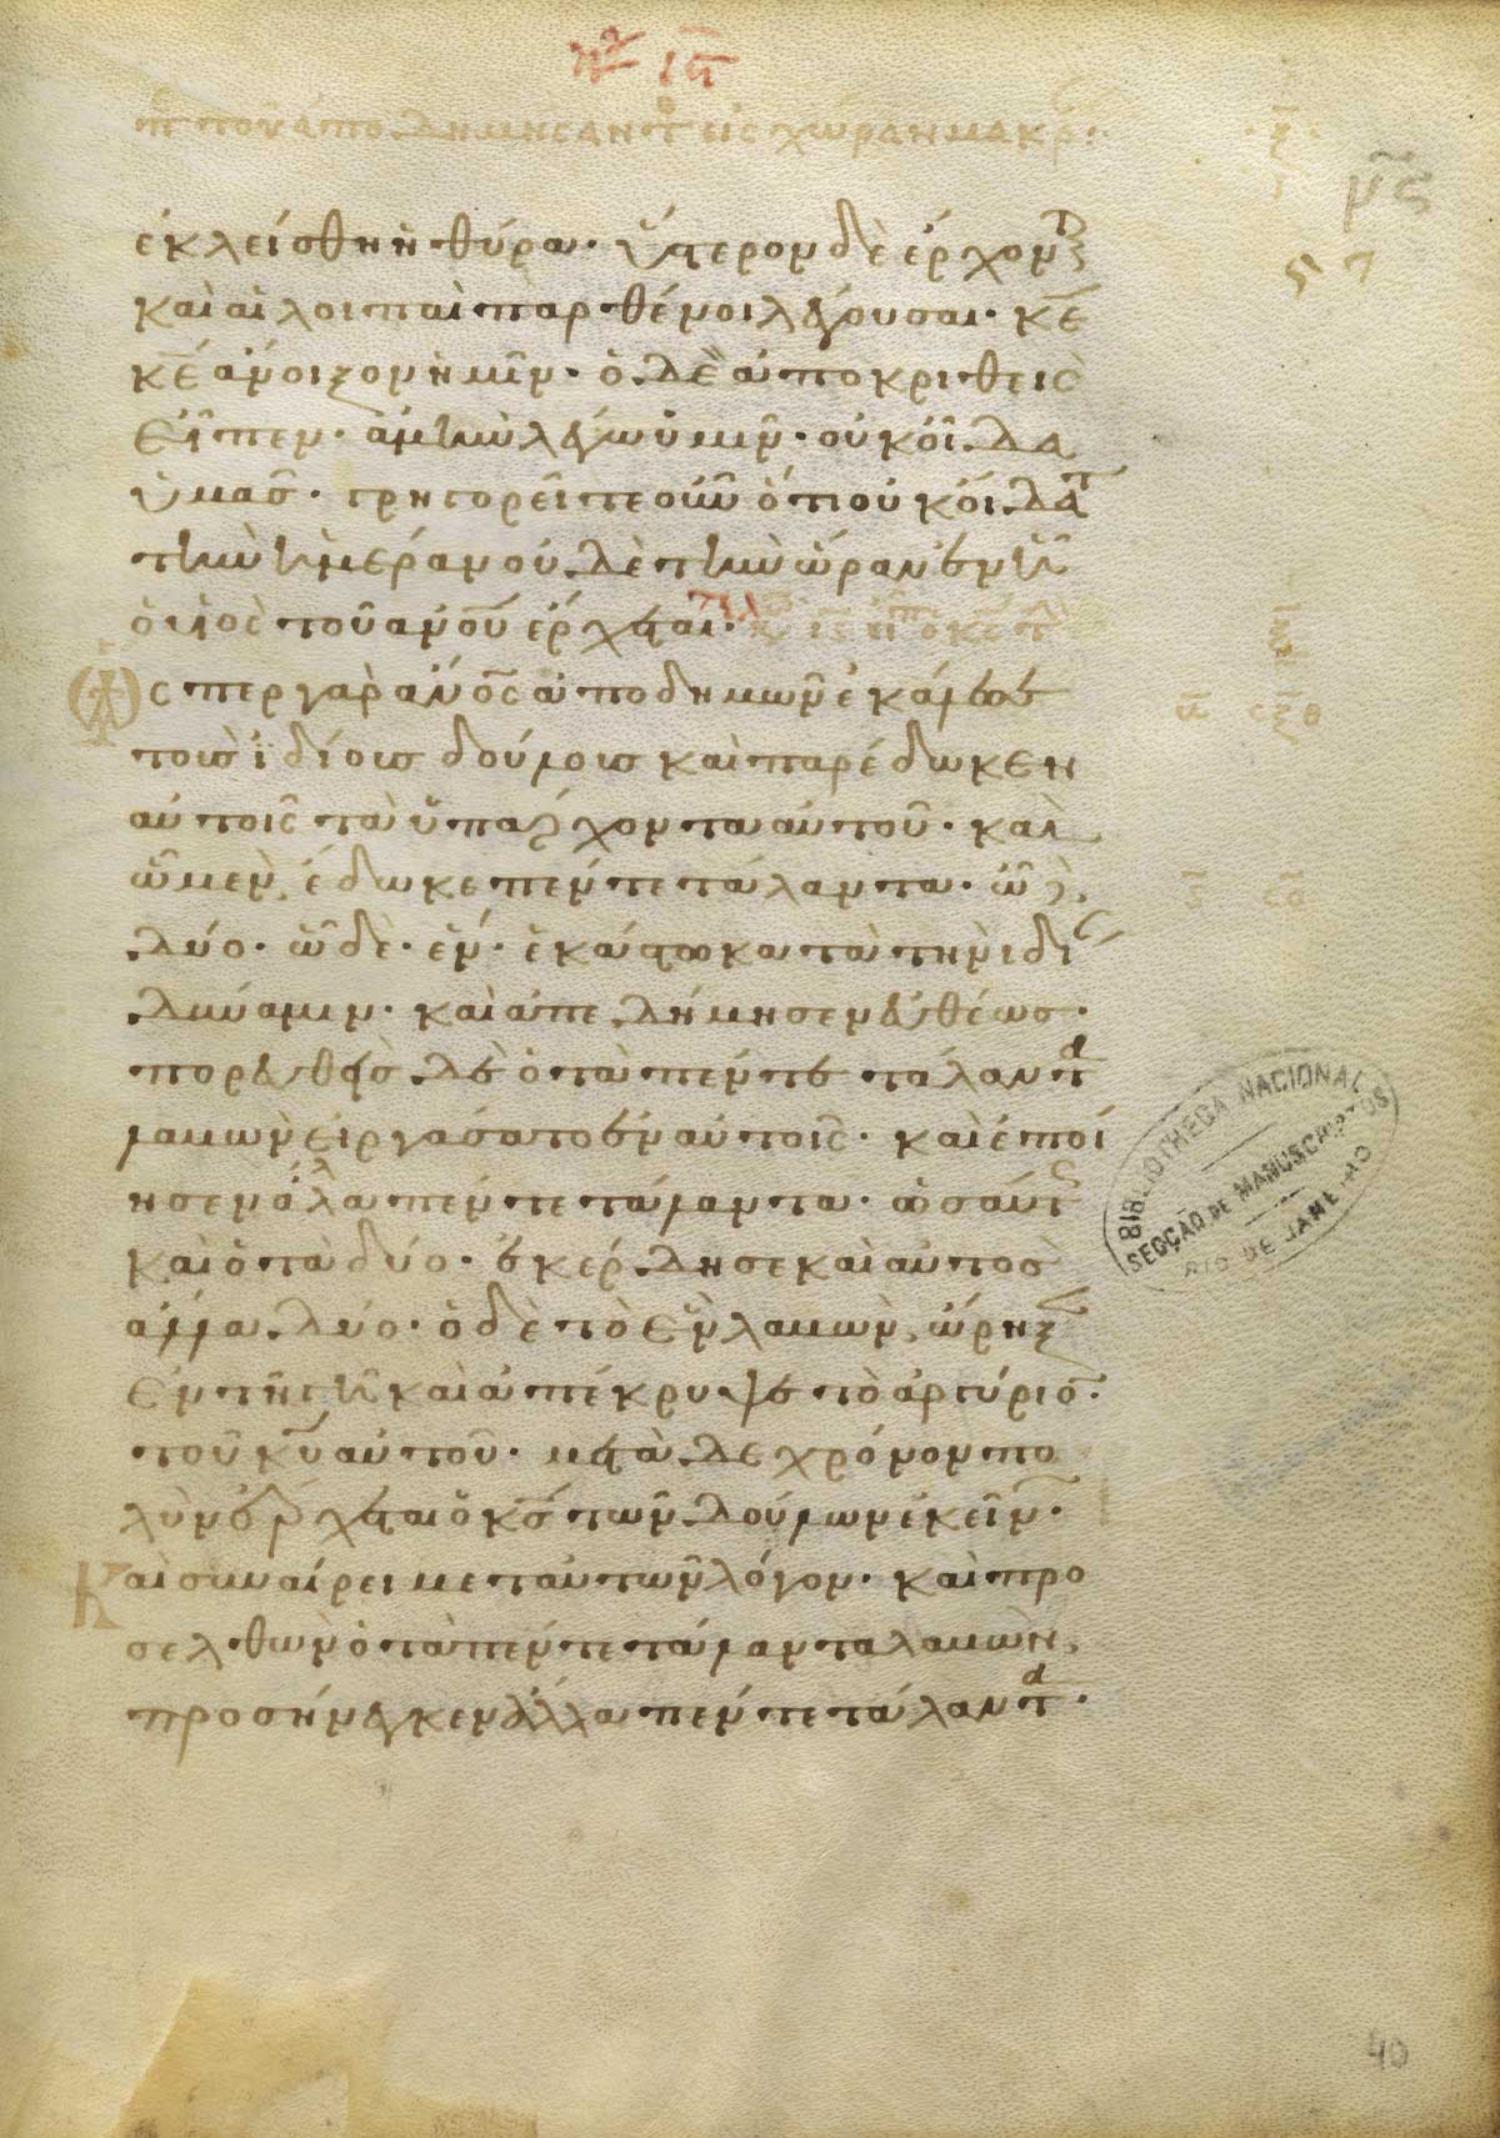 ἐκλείσθη ἡ θύρα· ὕστερον δὲ ἔρχοντ
καὶ αἱ λοιπαὶ παρθένοι λέγουσαι· κε
κε ἄνοιξον ἡμῖν· ὁ δὲ ἀποκριθεὶς
εἶπεν· ἀμὴν λέγω ὑμῖν· οὐκ οἶδα
ὑμᾶς· γρηγορεῖτε οὖν ὅτι οὐκ οἴδατ
τὴν ἡμέραν οὐδὲ τὴν ὥραν ἐν ᾗ
ὁ υἱὸς τοῦ ανου ἔρχεται·
Ὥσπερ γὰρ ανος ἀποδημῶν ἐκάλεσε
τοὺς ἰδίους δούλους καὶ παρέδωκεν
αὐτοῖς τὰ ὑπάρχοντα αὐτοῦ· καὶ
ᾧ μὲν ἔδωκε πέντε τάλαντα· ᾧ δὲ
δύο· ᾧ δὲ· ἕν· ἑκάστω κατὰ τὴν ἰδί
δύναμιν· καὶ ἀπεδήμησεν εὐθέως·
πορευθεὶς δὲ ὁ τὰ πέντε τάλαντα
λαβὼν εἰργάσατο ἐν αὐτοῖς· καὶ ἐποί
ησεν ἄλλα πέντε τάλαντα· ὡσαύτως
καὶ ὁ τὰ δύο· ἐκέρδησε καὶ αὐτὸς
ἄλλα δύο· ὁ δὲ τὸ ἓν λαβὼν, ὤρυξεν
ἐν τῇ γῇ καὶ ἀπέκρυψε τὸ ἀργύριον·
τοῦ κυ αὐτοῦ· μετὰ δε χρόνον πο
λὺν ἔρχεται ὁ κς τῶν δούλων ἐκείνων·
Καὶ συναίρει μετ αὐτῶν λόγον· καὶ προ
σελθὼν ὁ τὰ πέντε τάλαντα λαβὼν,
προσήνεγκεν ἄλλα πέντε τάλαντα·
BIBLIOTHECA NACIONAL
SECÇÃO DE MANUSCRIPTOS
RIO DE JANEIRO
40